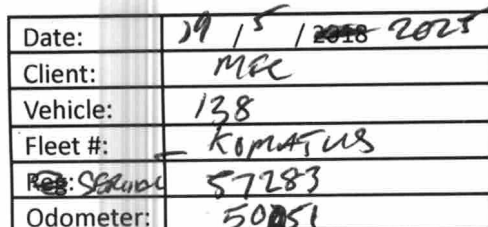 Date: 29 / 5 / 2018 2025
Client: MFC
Vehicle: 138
Fleet #: KOMATUS
Reg: SERIAL 57283
Odometer: 50051